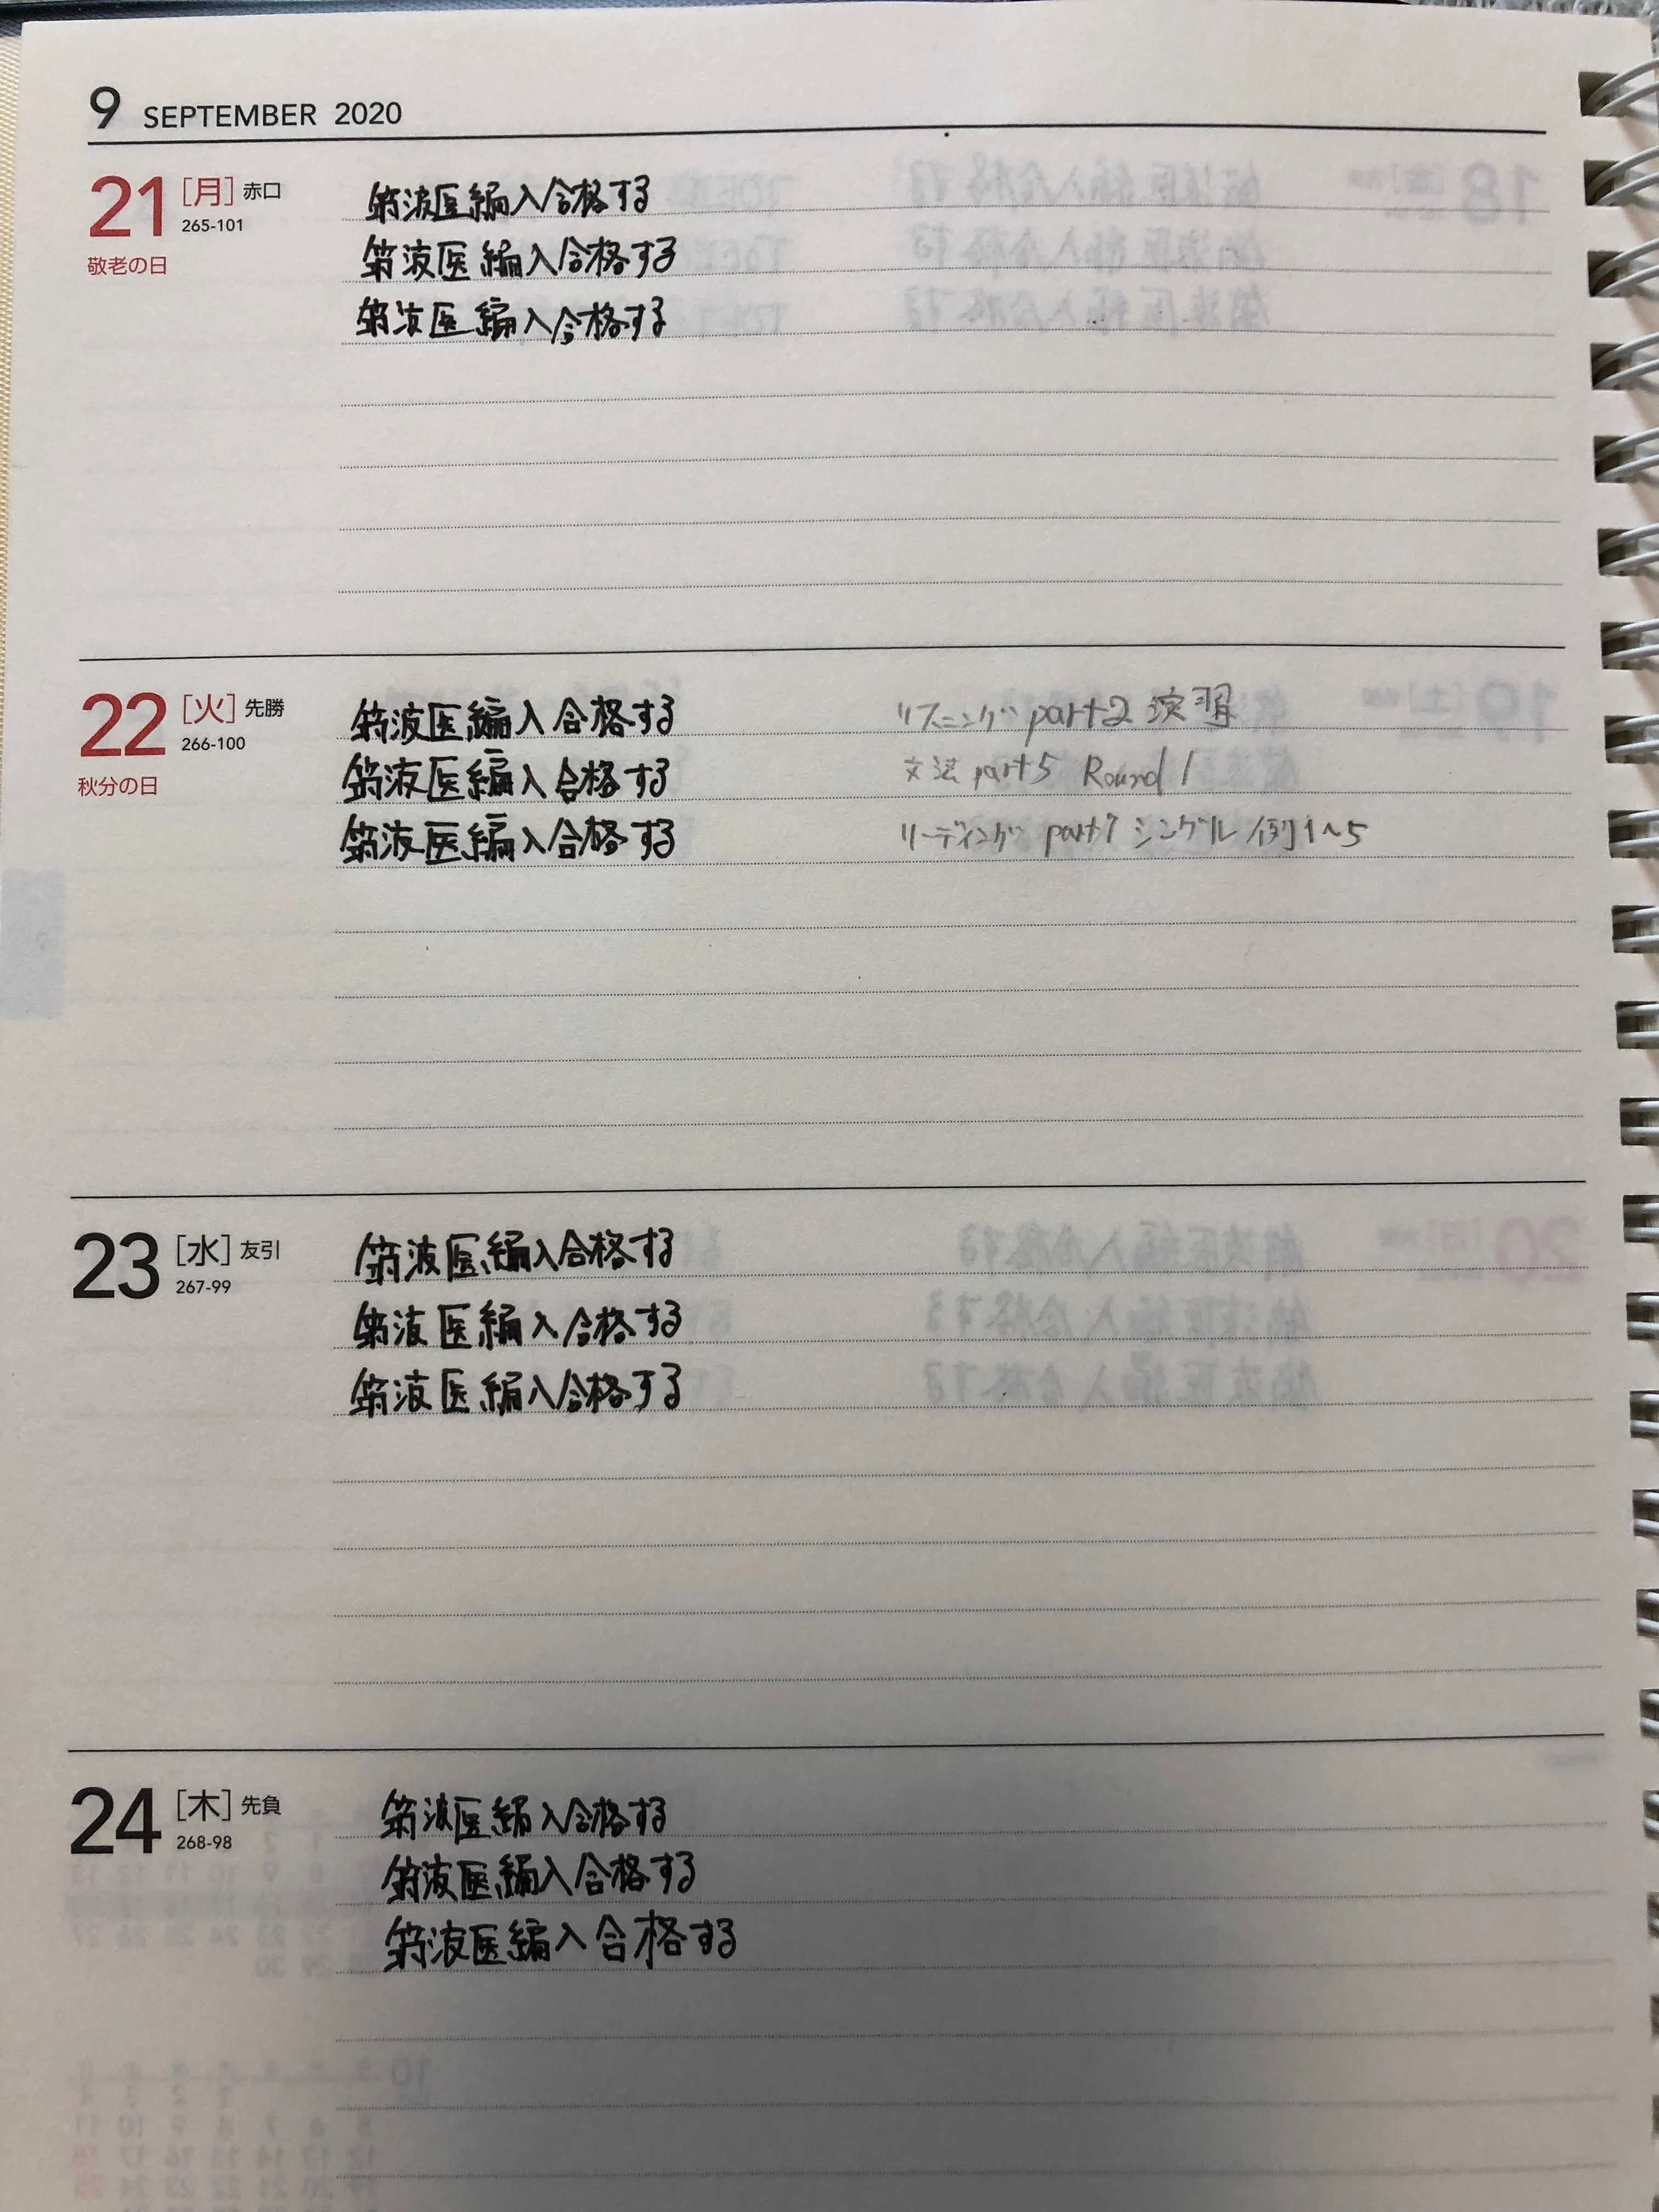 9 SEPTEMBER 2020
21 [月] 赤口
265-101
敬老の日
筑波医編入合格する
筑波医編入合格する
筑波医編入合格する
22 [火] 先勝
266-100
秋分の日
筑波医編入合格する
筑波医編入合格する
筑波医編入合格する
リスニング part2 演習
文法 part5 Round 1
リーディング part7 シングル 例1~5
23 [水] 友引
267-99
筑波医編入合格する
筑波医編入合格する
筑波医編入合格する
24 [木] 先負
268-98
筑波医編入合格する
筑波医編入合格する
筑波医編入合格する